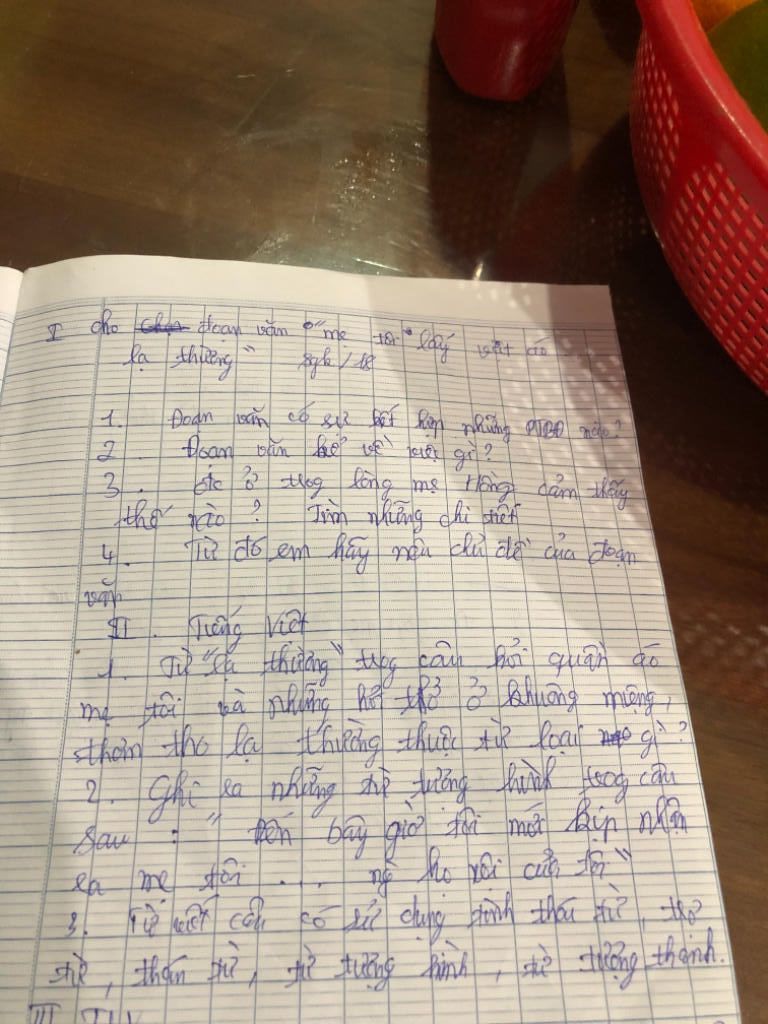 I cho đoạn văn "mẹ tôi lấy vạt áo ...
lạ thường" sgk/18
1. Đoạn văn có sự kết hợp những PTBĐ nào?
2. Đoạn văn kể về việc gì?
3. Khi ở trog lòng mẹ Hồng cảm thấy
thế nào? Tìm những chi tiết
4. Từ đó em hãy nêu chủ đề của đoạn
văn
II. Tiếng Việt
1. Từ "lạ thường" trog câu hơi quần áo
mẹ tôi và những hơi thở ở khuôn miệng,
thơm tho lạ thường thuộc từ loại gì?
2. Ghi ra những từ tượng hình trog câu
sau: " Đến bây giờ tôi mới kịp nhận
ra mẹ tôi .... họ nội của tôi"
3. Từ viết câu có sử dụng tình thái từ, trợ
từ, thán từ, từ tượng hình, từ tượng thanh.
III